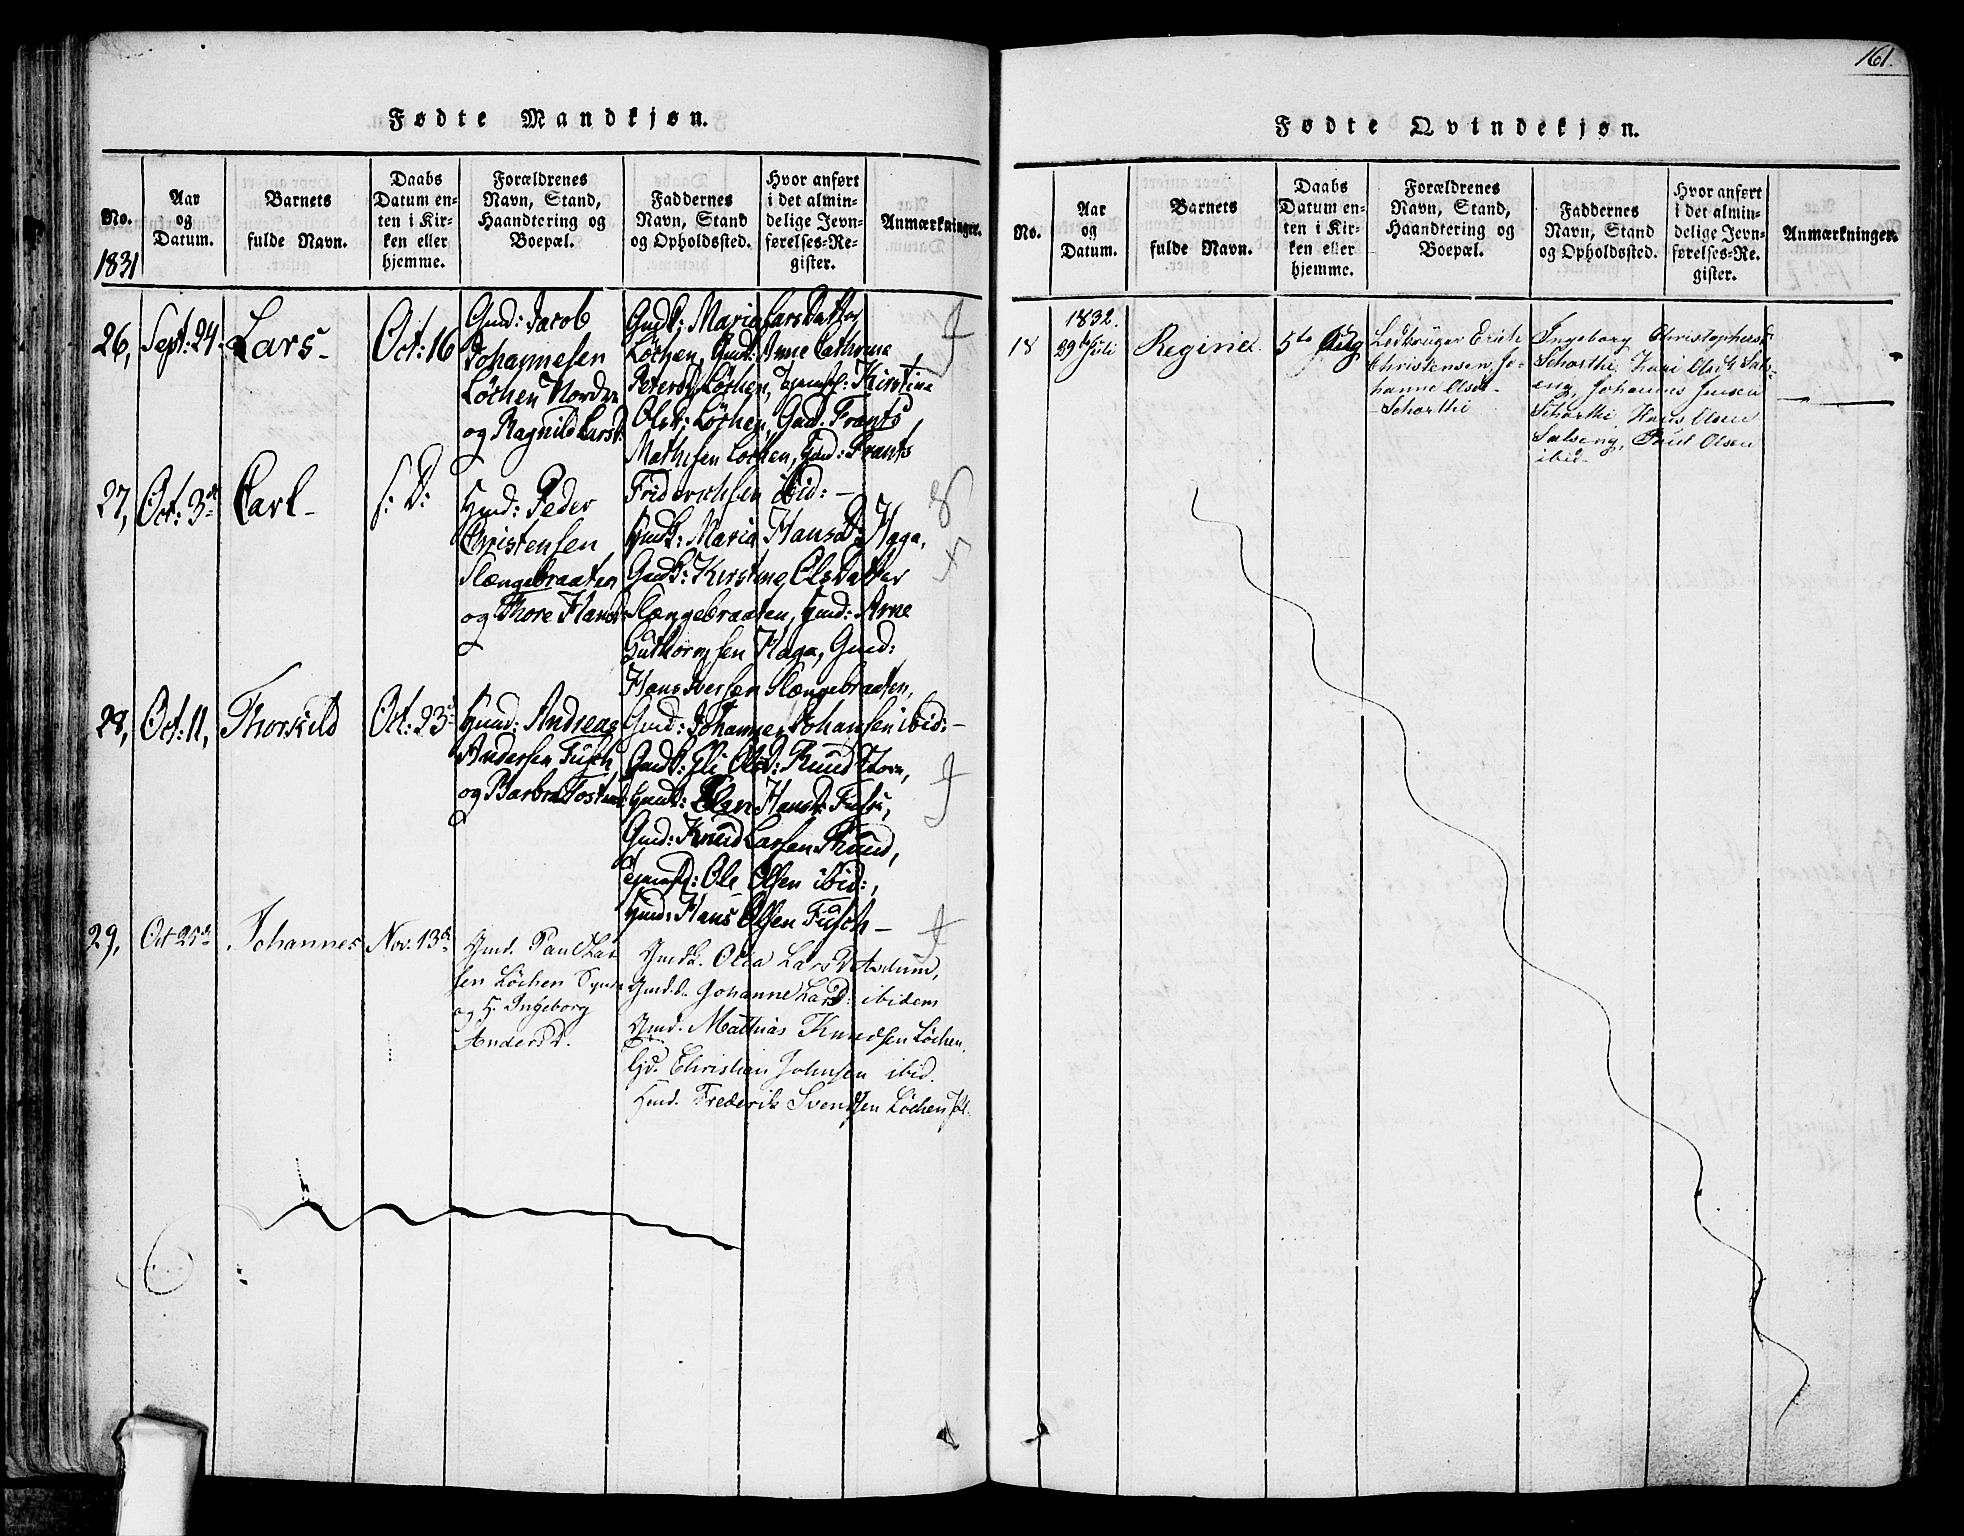 161.
Fødte Mandkjøn.
No.
1831
Aar
og
Datum.
Barnets
fulde Navn.
Daabs
Datum en-
ten i Kir-
ken eller
hjemme.
Forældrenes
Navn, Stand,
Haandtering og
Boepæl.
Faddernes
Navn, Stand
og Opholdssted.
Hvor anført
i det almin-
delige Jevn-
førelses-Re-
gister.
Anmærkninger.
26, Sept: 24. Lars- Oct: 16
Gmd: Jacob
Johannesen
Løchen Nordre
og Ragnild Larsd:
Gmdk: Maria Larsdatter
Løchen, Gmdk: Anne Cathrine
Petersd: Løchen, Kirstine
Olsd: Løchen, Gmd: Frants
Mathisen Løchen, Gmd: Frants
Friderichsen ibid: -
27, Oct: 3d Carl- s: D:
Hmd: Peder
Christensen
Slængebraaten
og Thore Hansd:
Hmdk: Maria Hansd: Haga,
Gmdk: Kirstine Olsdatter
Slængebraaten, Hmd: Arne
Guthormsen Haga, Gmd:
Hans Iversen Slængebraaten,
Gmd: Johannes Johansen ibid: -
28, Oct: 11, Thorkild Oct: 23d
Hmd: Andreas
Andersen Fusch
og Barbra Tostensd:
Gmdk: Eli Olsd: Ruud
Hmdk: Elen Hansd: Fusch,
Gmd: Knud Larsen Ruud,
Ole Olsen ibid:,
Hmd: Hans Olsen Fusch-
29, Oct 25d Johannes Nov. 13d
Gmd. Paul Lar
sen Løchen Syndre
og H. Ingeborg
Andersd.
Gmdk. Olea Larsd Asdum,
Gmdk. Johanne Larsd: ibidem
Gmd. Mathias Knudsen Løchen,
Christian Johnsen ibid.
Hmd. Frederik Svendsen Løchen
Fødte Qvindekjøn.
No.
Aar
og
Datum.
Barnets
fulde Navn.
Daabs
Datum en-
ten i Kir-
ken eller
hjemme.
Forældrenes
Navn, Stand,
Haandtering og
Boepæl.
Faddernes
Navn, Stand
og Opholdssted.
Hvor anført
i det almin-
delige Jevn-
førelses-Re-
gister.
Anmærkninger.
1832.
18 29de Juli Regine. 5te Aug
Leilænding Erich
Christensen, Jo-
hanne Olsd.
Schorthi
Ingeborg Christophersd
Schorthi, Kari Olsd. Sals-
eng, Johannes Jensen
Schorthi, Hans Olsen
Salseng, Poul Olsen
ibid-